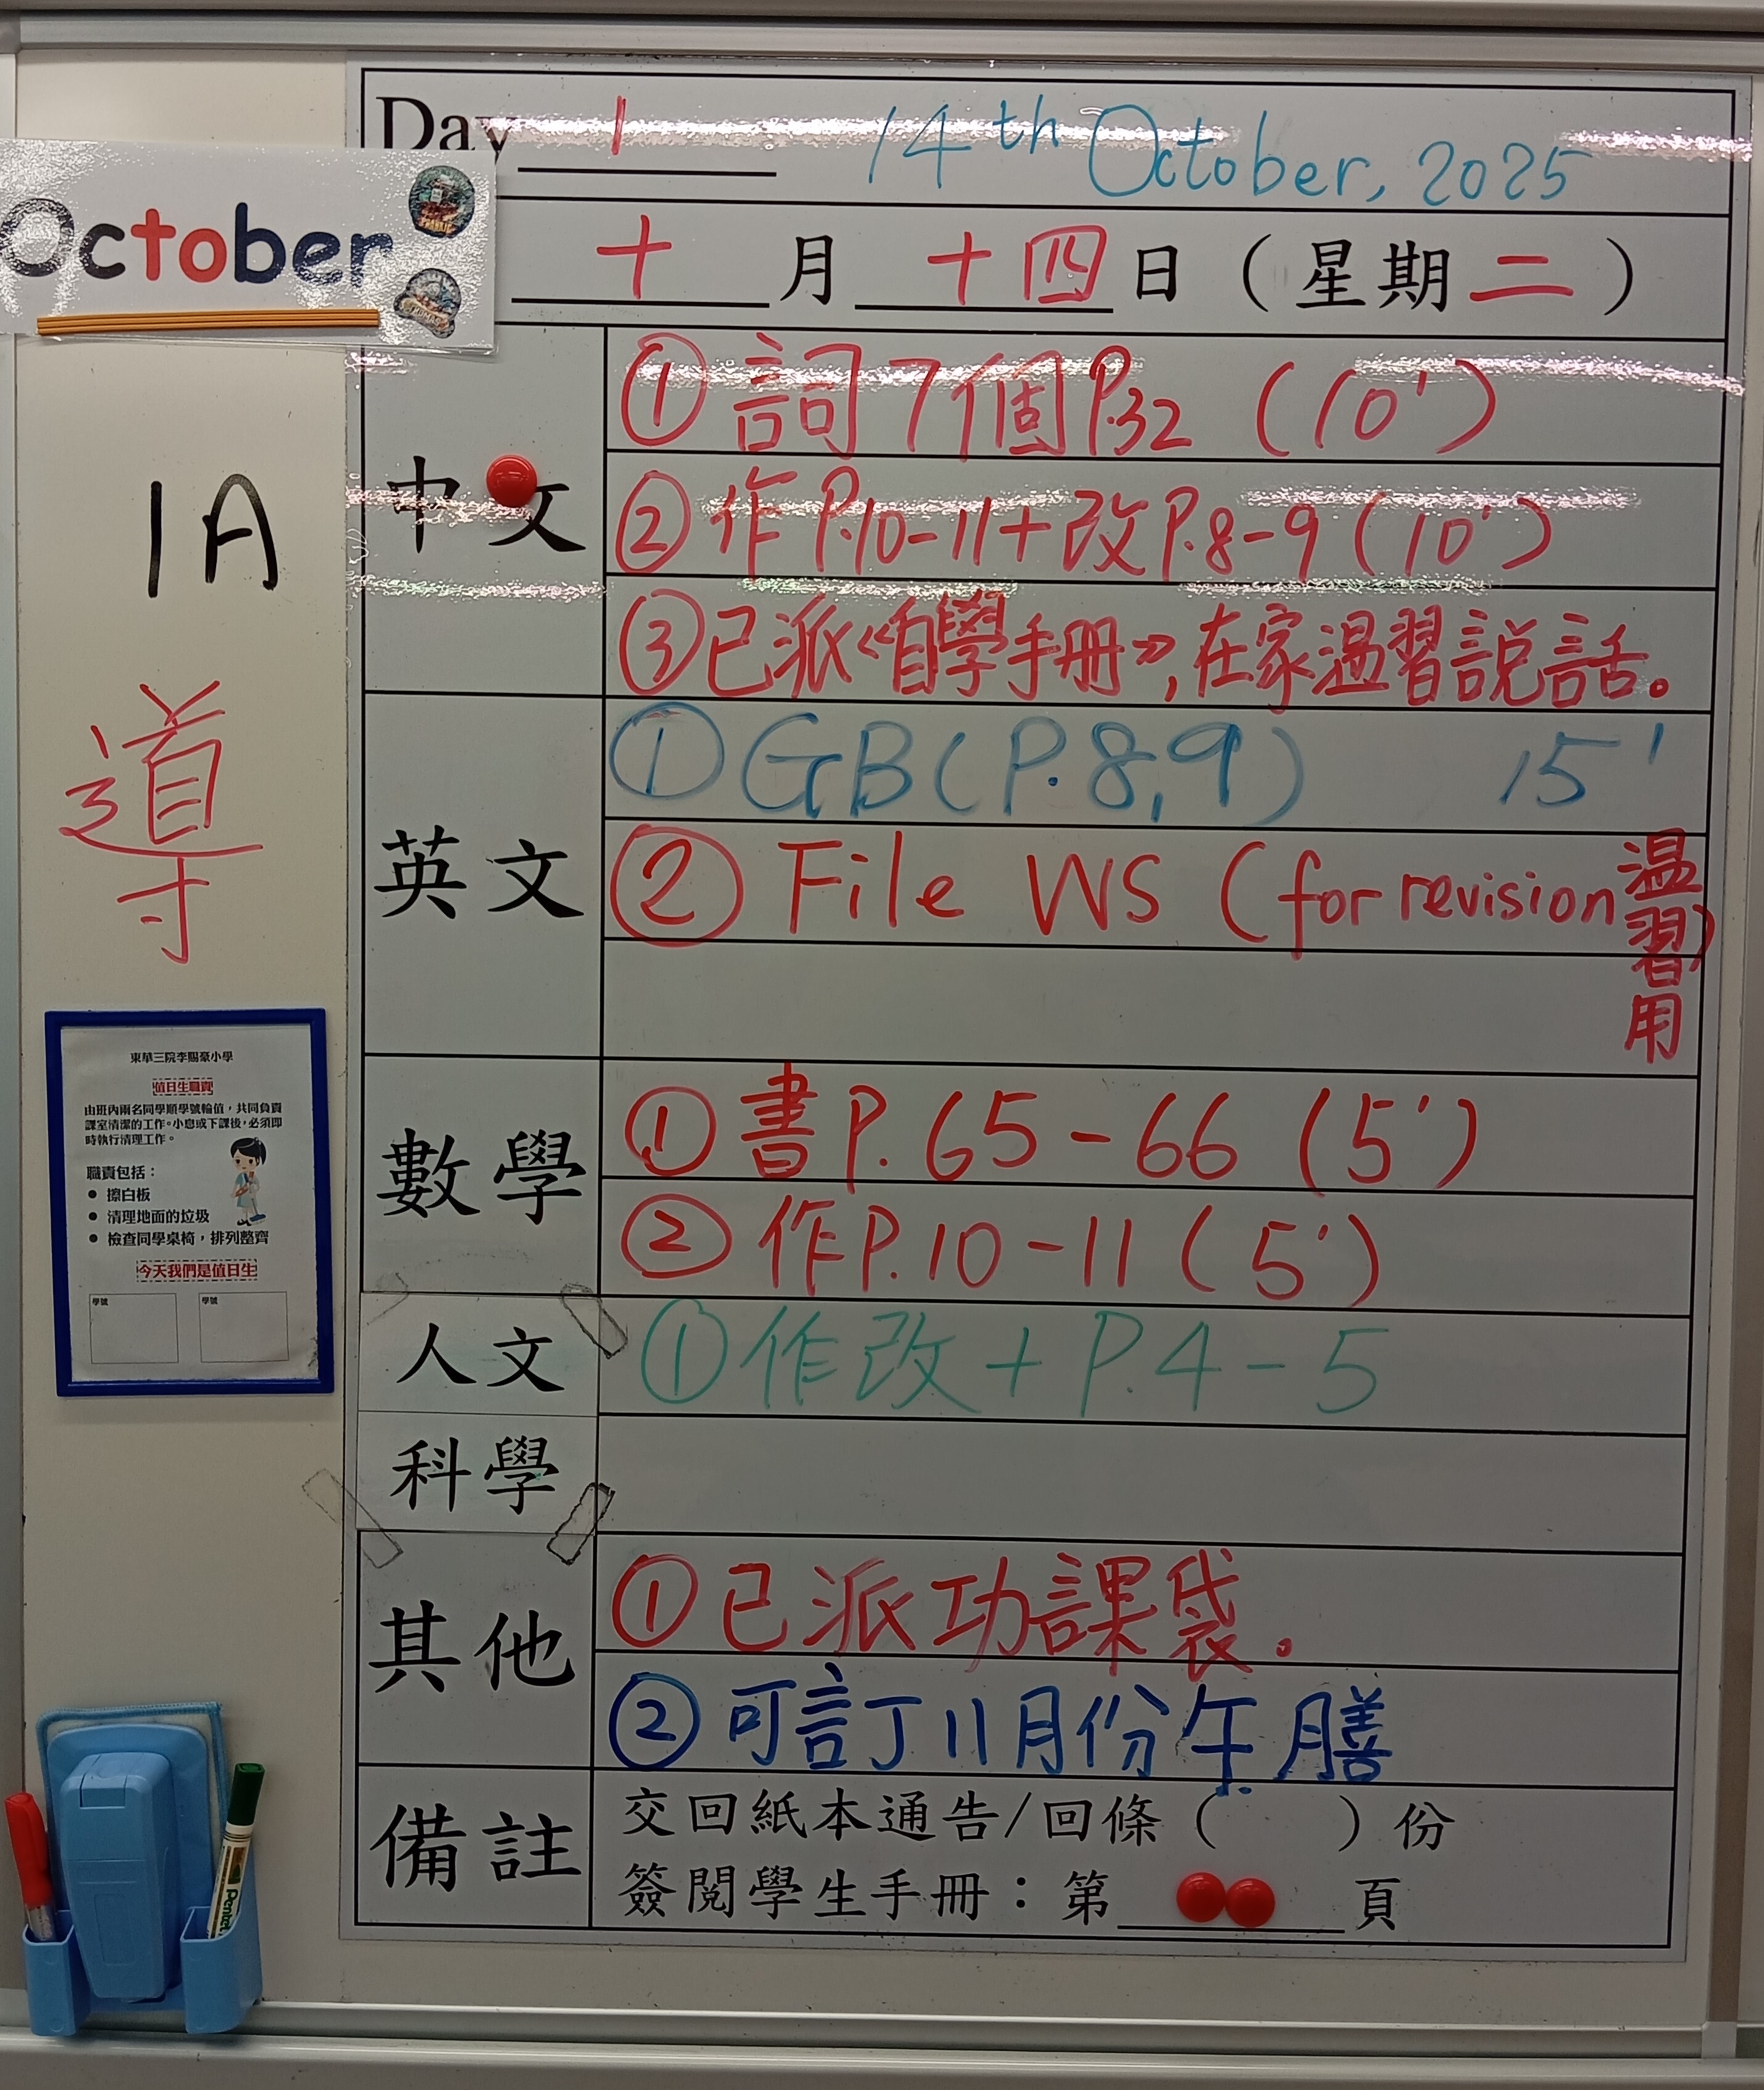 Day 1 14th October, 2025
October
十月十四日（星期二）
1A
導
中文
①詞7個P.32 (10')
②作P.10-11+改P.8-9 (10')
③已派《自學手冊》,在家温習說話。
英文
①GB(P.8,9) 15'
②File WS (for revision温習用)
數學
①書P.65-66 (5')
②作P.10-11 (5')
人文
①作改+P.4-5
科學
其他
①已派功課袋.
②可訂11月份午膳
備註
交回紙本通告/回條（ ）份
簽閱學生手冊：第 頁
東華三院李賜豪小學
值日生職責
由班內兩名同學順學號輪值，共同負責
課室清潔的工作。小息或下課後，必須即
時執行清理工作。
職責包括：
● 擦白板
● 清理地面的垃圾
● 檢查同學桌椅，排列整齊
今天我們是值日生
學號 學號
Pentel